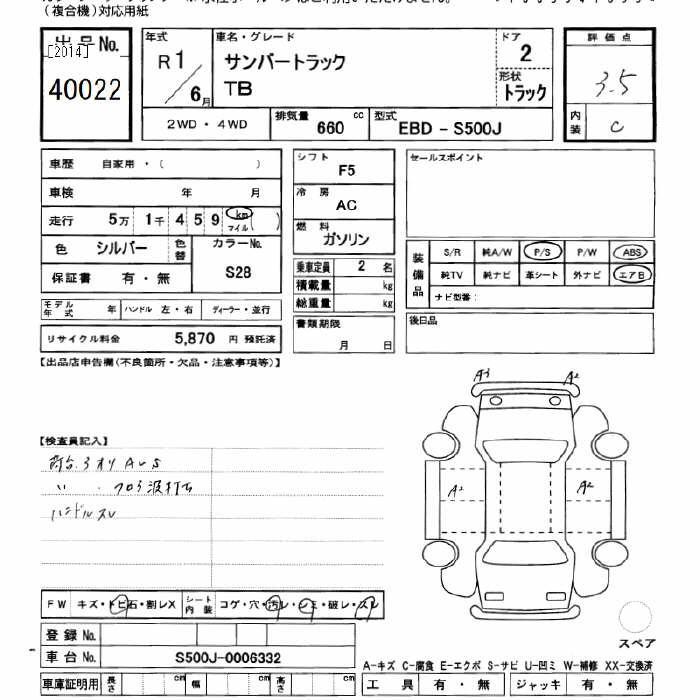 (複合機)対応用紙
出品No.
[2014]
40022
年式
R 1 / 6月
車名・グレード
サンバートラック
TB
ドア
2
形状
トラック
2WD・4WD
排気量 660 cc
型式 EBD - S500J
評価点
3.5
内装 C
車歴 自家用・( )
車検 年 月
走行 5万 1千 4 5 9 km マイル ( )
色 シルバー 色替
カラーNo.
S28
保証書 有・無
モデル年式 年 ハンドル 左・右 ディーラー・並行
リサイクル料金 5,870 円 預託済
シフト
F5
冷房
AC
燃料
ガソリン
乗車定員 2 名
積載量 kg
総重量 kg
書類期限
月 日
セールスポイント
装備品
S/R 純A/W P/S P/W ABS
純TV 純ナビ 革シート 外ナビ エアB
ナビ型番:
後日品
【出品店申告欄(不良箇所・欠品・注意事項等)】
【検査員記入】
荷台 3オリ AUS
〃 ・ フロア波打ち
ハンドルスレ
A3 A2
A2 A2
FW キズ・トビ石・割レX シート内装 コゲ・穴・汚レ・シミ・破レ・スレ
登録No.
車台No. S500J-0006332
車庫証明用 長さ cm 幅 cm 高さ cm
スペア
A-キズ C-腐食 E-エクボ S-サビ U-凹ミ W-補修 XX-交換済
工具 有・無 ジャッキ 有・無